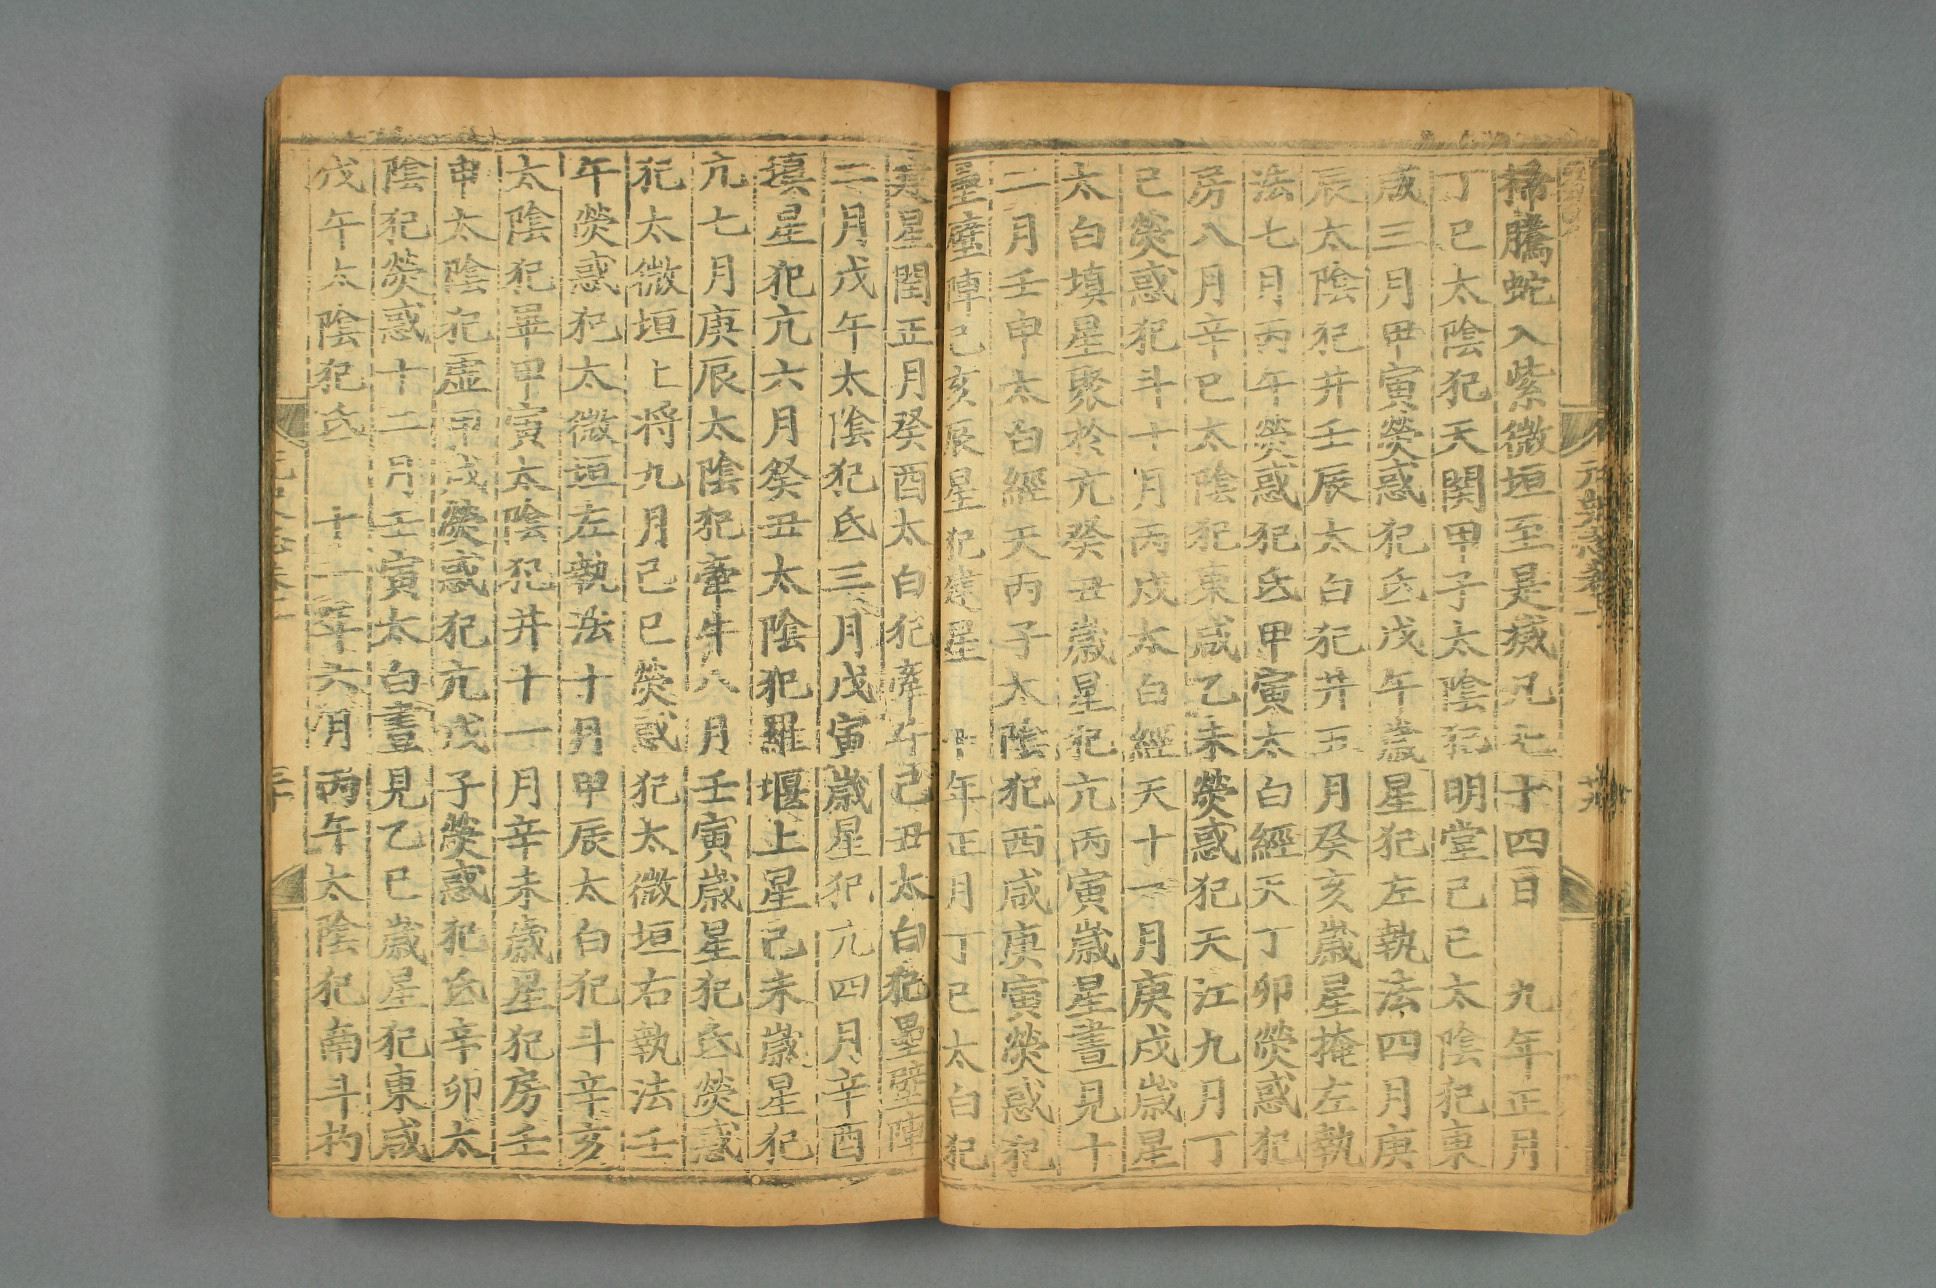 掃騰蛇入紫微垣至是撼凡七十四日九年正月
丁巳太陰犯天關甲子太陰犯明堂己巳太陰犯東
咸三月甲寅熒惑犯氐戊午歲星犯左執法四月庚
辰太陰犯井壬辰太白犯井五月癸亥歲星掩左執
法七月丙午熒惑犯氐甲寅太白經天丁卯熒惑犯
房八月辛巳太陰犯東咸乙未熒惑犯天江九月丁
己熒惑犯斗十月丙戌太白經天十一月庚戌歲星
太白填星聚於亢癸丑歲星犯亢丙寅歲星晝見十
二月壬申太白經天丙子太陰犯西咸庚寅熒惑犯
壘壁陣己亥辰星犯建星 十年正月丁巳太白犯
建星閏正月癸酉太白犯牽牛己丑太白犯壘壁陣
二月戊午太陰犯氐三月戊寅歲星犯亢四月辛酉
填星犯亢六月癸丑太陰犯羅堰上星己未歲星犯
亢七月庚辰太陰犯牽牛八月壬寅歲星犯氐熒惑
犯太微垣上將九月己巳熒惑犯太微垣右執法壬
午熒惑犯太微垣左執法十月甲辰太白犯斗辛亥
太陰犯畢甲寅太陰犯井十一月辛未歲星犯房壬
申太陰犯虛甲戌熒惑犯亢戊子熒惑犯氐辛卯太
陰犯熒惑十二月壬寅太白晝見乙巳歲星犯東咸
戊午太陰犯氐 十一年六月丙午太陰犯南斗杓